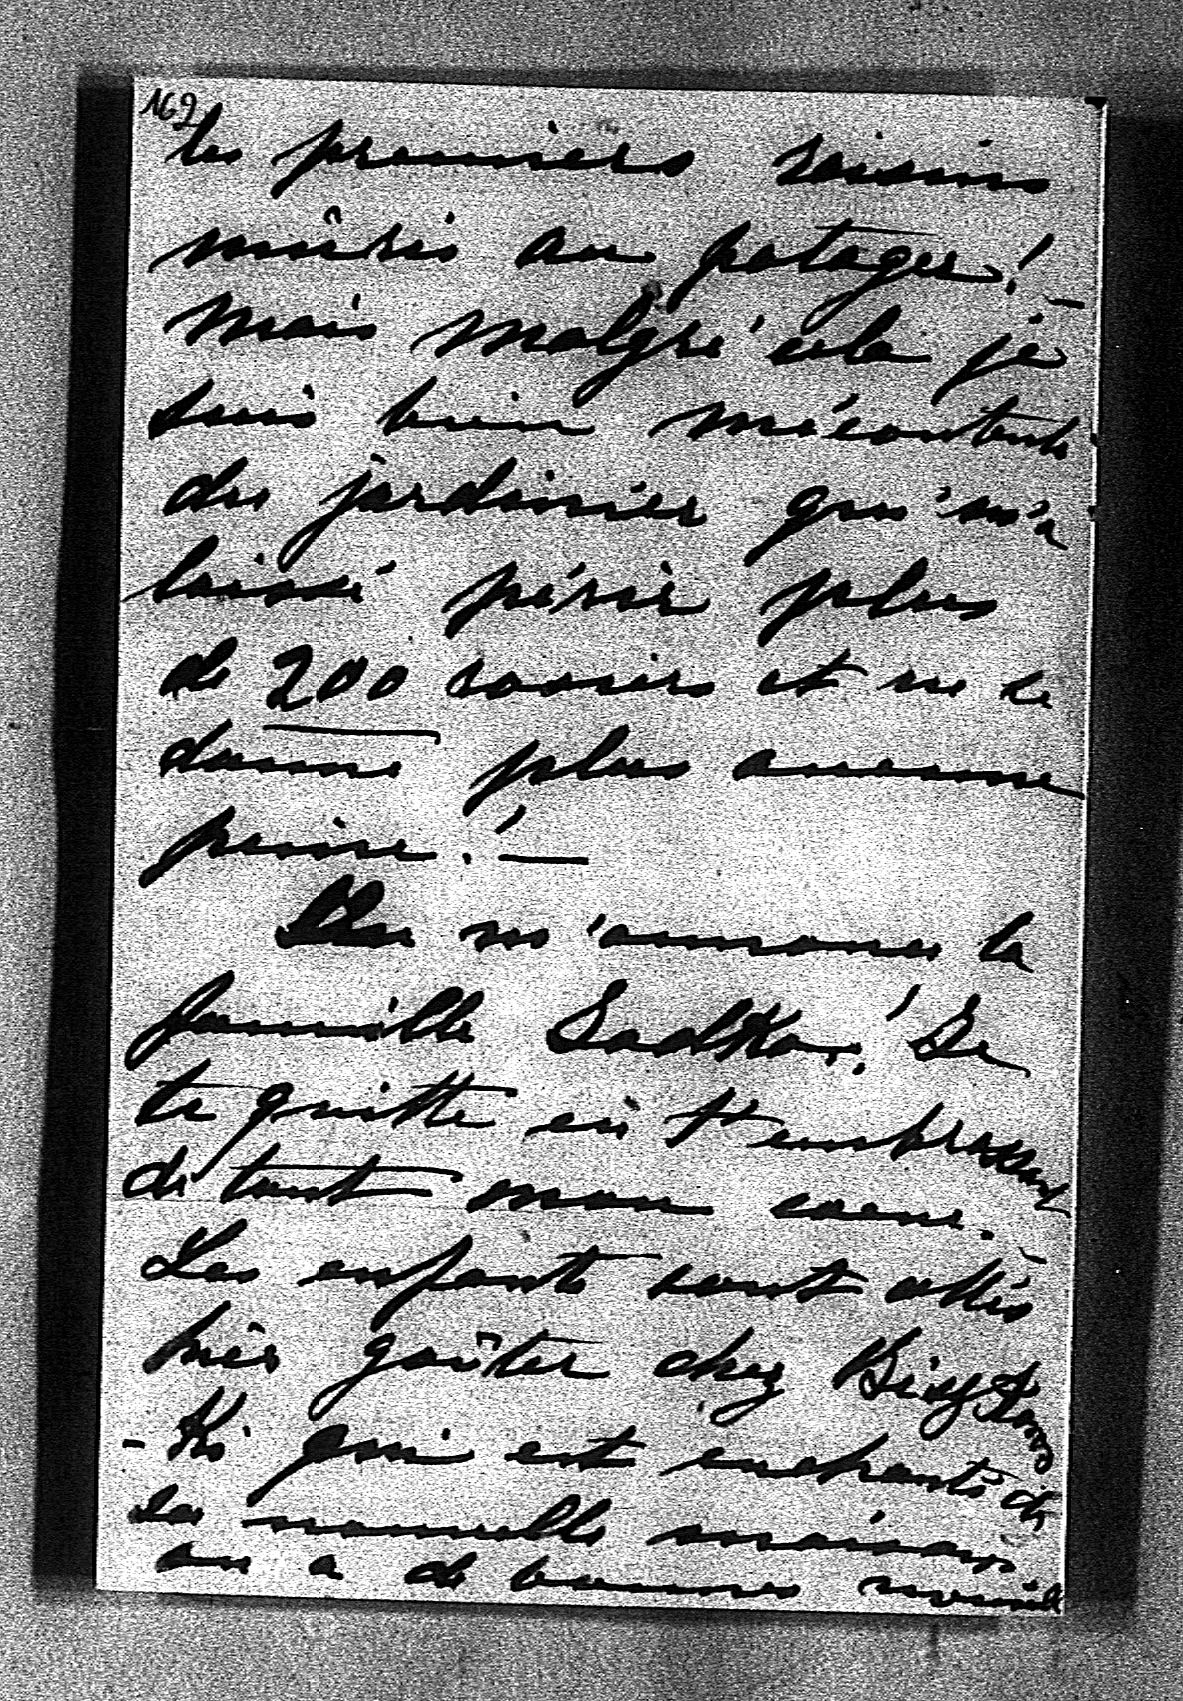 169
les premiers raisins
mûris au potager! –
Mais malgré cela je
suis bien mécontente
du jardinier qui m'a
laissé périr plus
de 200 rosiers et ne se
donne plus aucune
peine! —
On m'annonce la
famille Sadko! Je
te quitte en t'embrassant
de tout mon coeur. –
Les enfants sont allés
hier goûter chez
- Ki qui est enchanté de
sa nouvelle maison
on a de bonnes